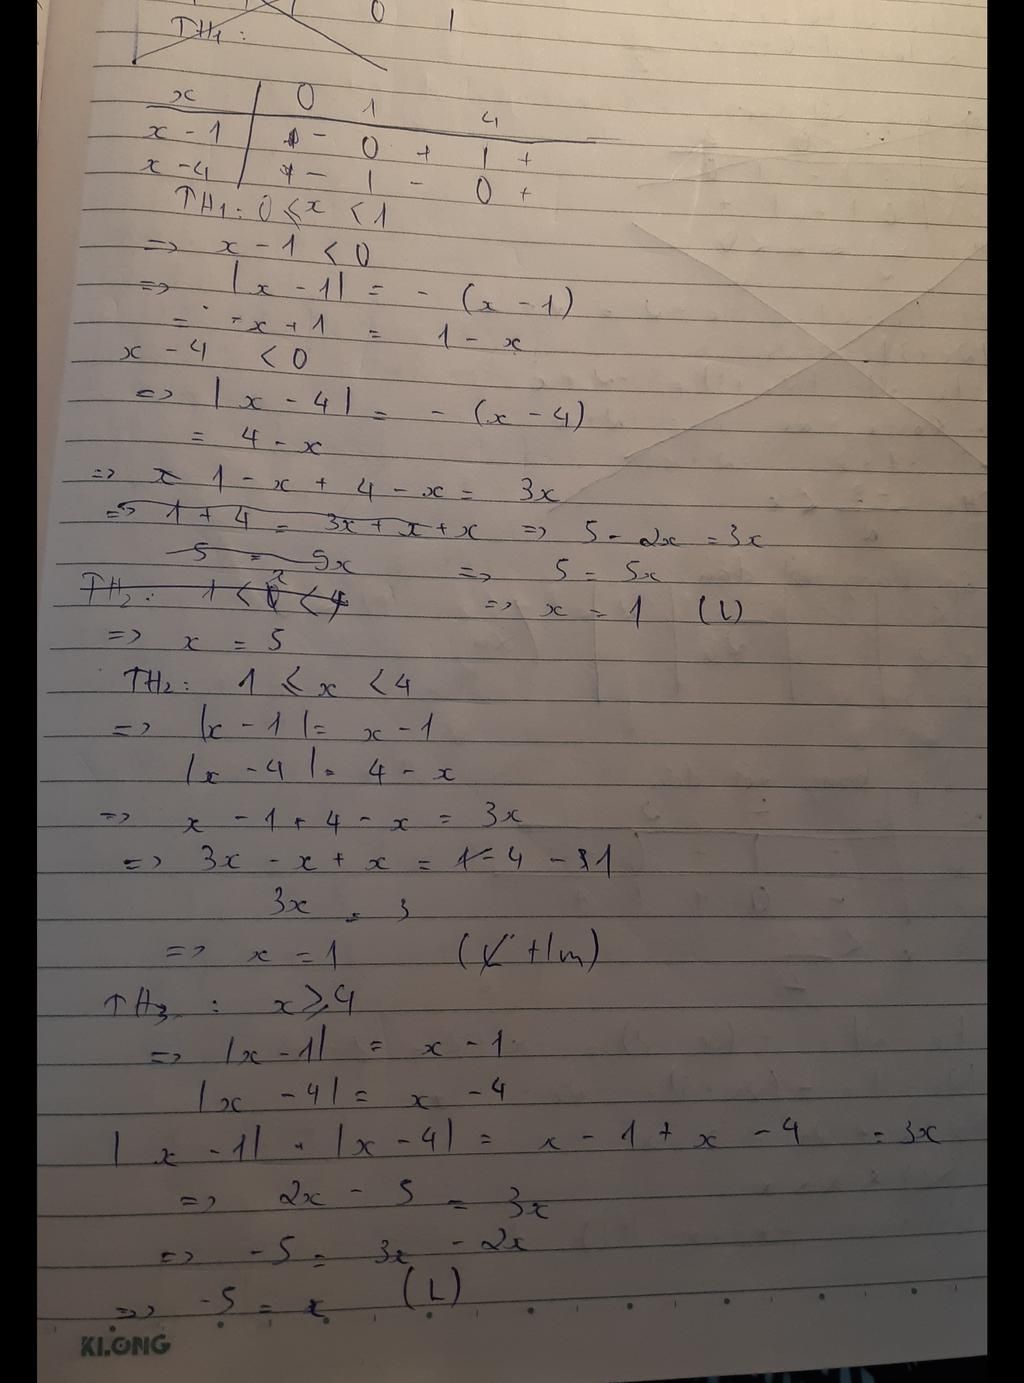 0 1
TH₁:
x 0 1 4
x - 1 - 0 + | +
x - 4 - | - 0 +
TH₁: 0 ≤ x < 1
=> x - 1 < 0
=> |x - 1| = - (x - 1)
= -x + 1 = 1 - x
x - 4 < 0
=> |x - 4| = - (x - 4)
= 4 - x
=> 1 - x + 4 - x = 3x
=> 1 + 4 = 3x + x + x => 5 - 2x = 3x
5 = 5x => 5 = 5x
TH₂: 1 < x < 4 => x = 1 (L)
=> x = 5
TH₂: 1 ≤ x < 4
=> |x - 1| = x - 1
|x - 4| = 4 - x
=> x - 1 + 4 - x = 3x
=> 3x - x + x = 4 - 1
3x = 3
=> x = 1 (t/m)
TH₃: x ≥ 4
=> |x - 1| = x - 1
|x - 4| = x - 4
|x - 1| + |x - 4| = x - 1 + x - 4 = 3x
=> 2x - 5 = 3x
=> -5 = 3x - 2x
=> -5 = x (L)
KLONG